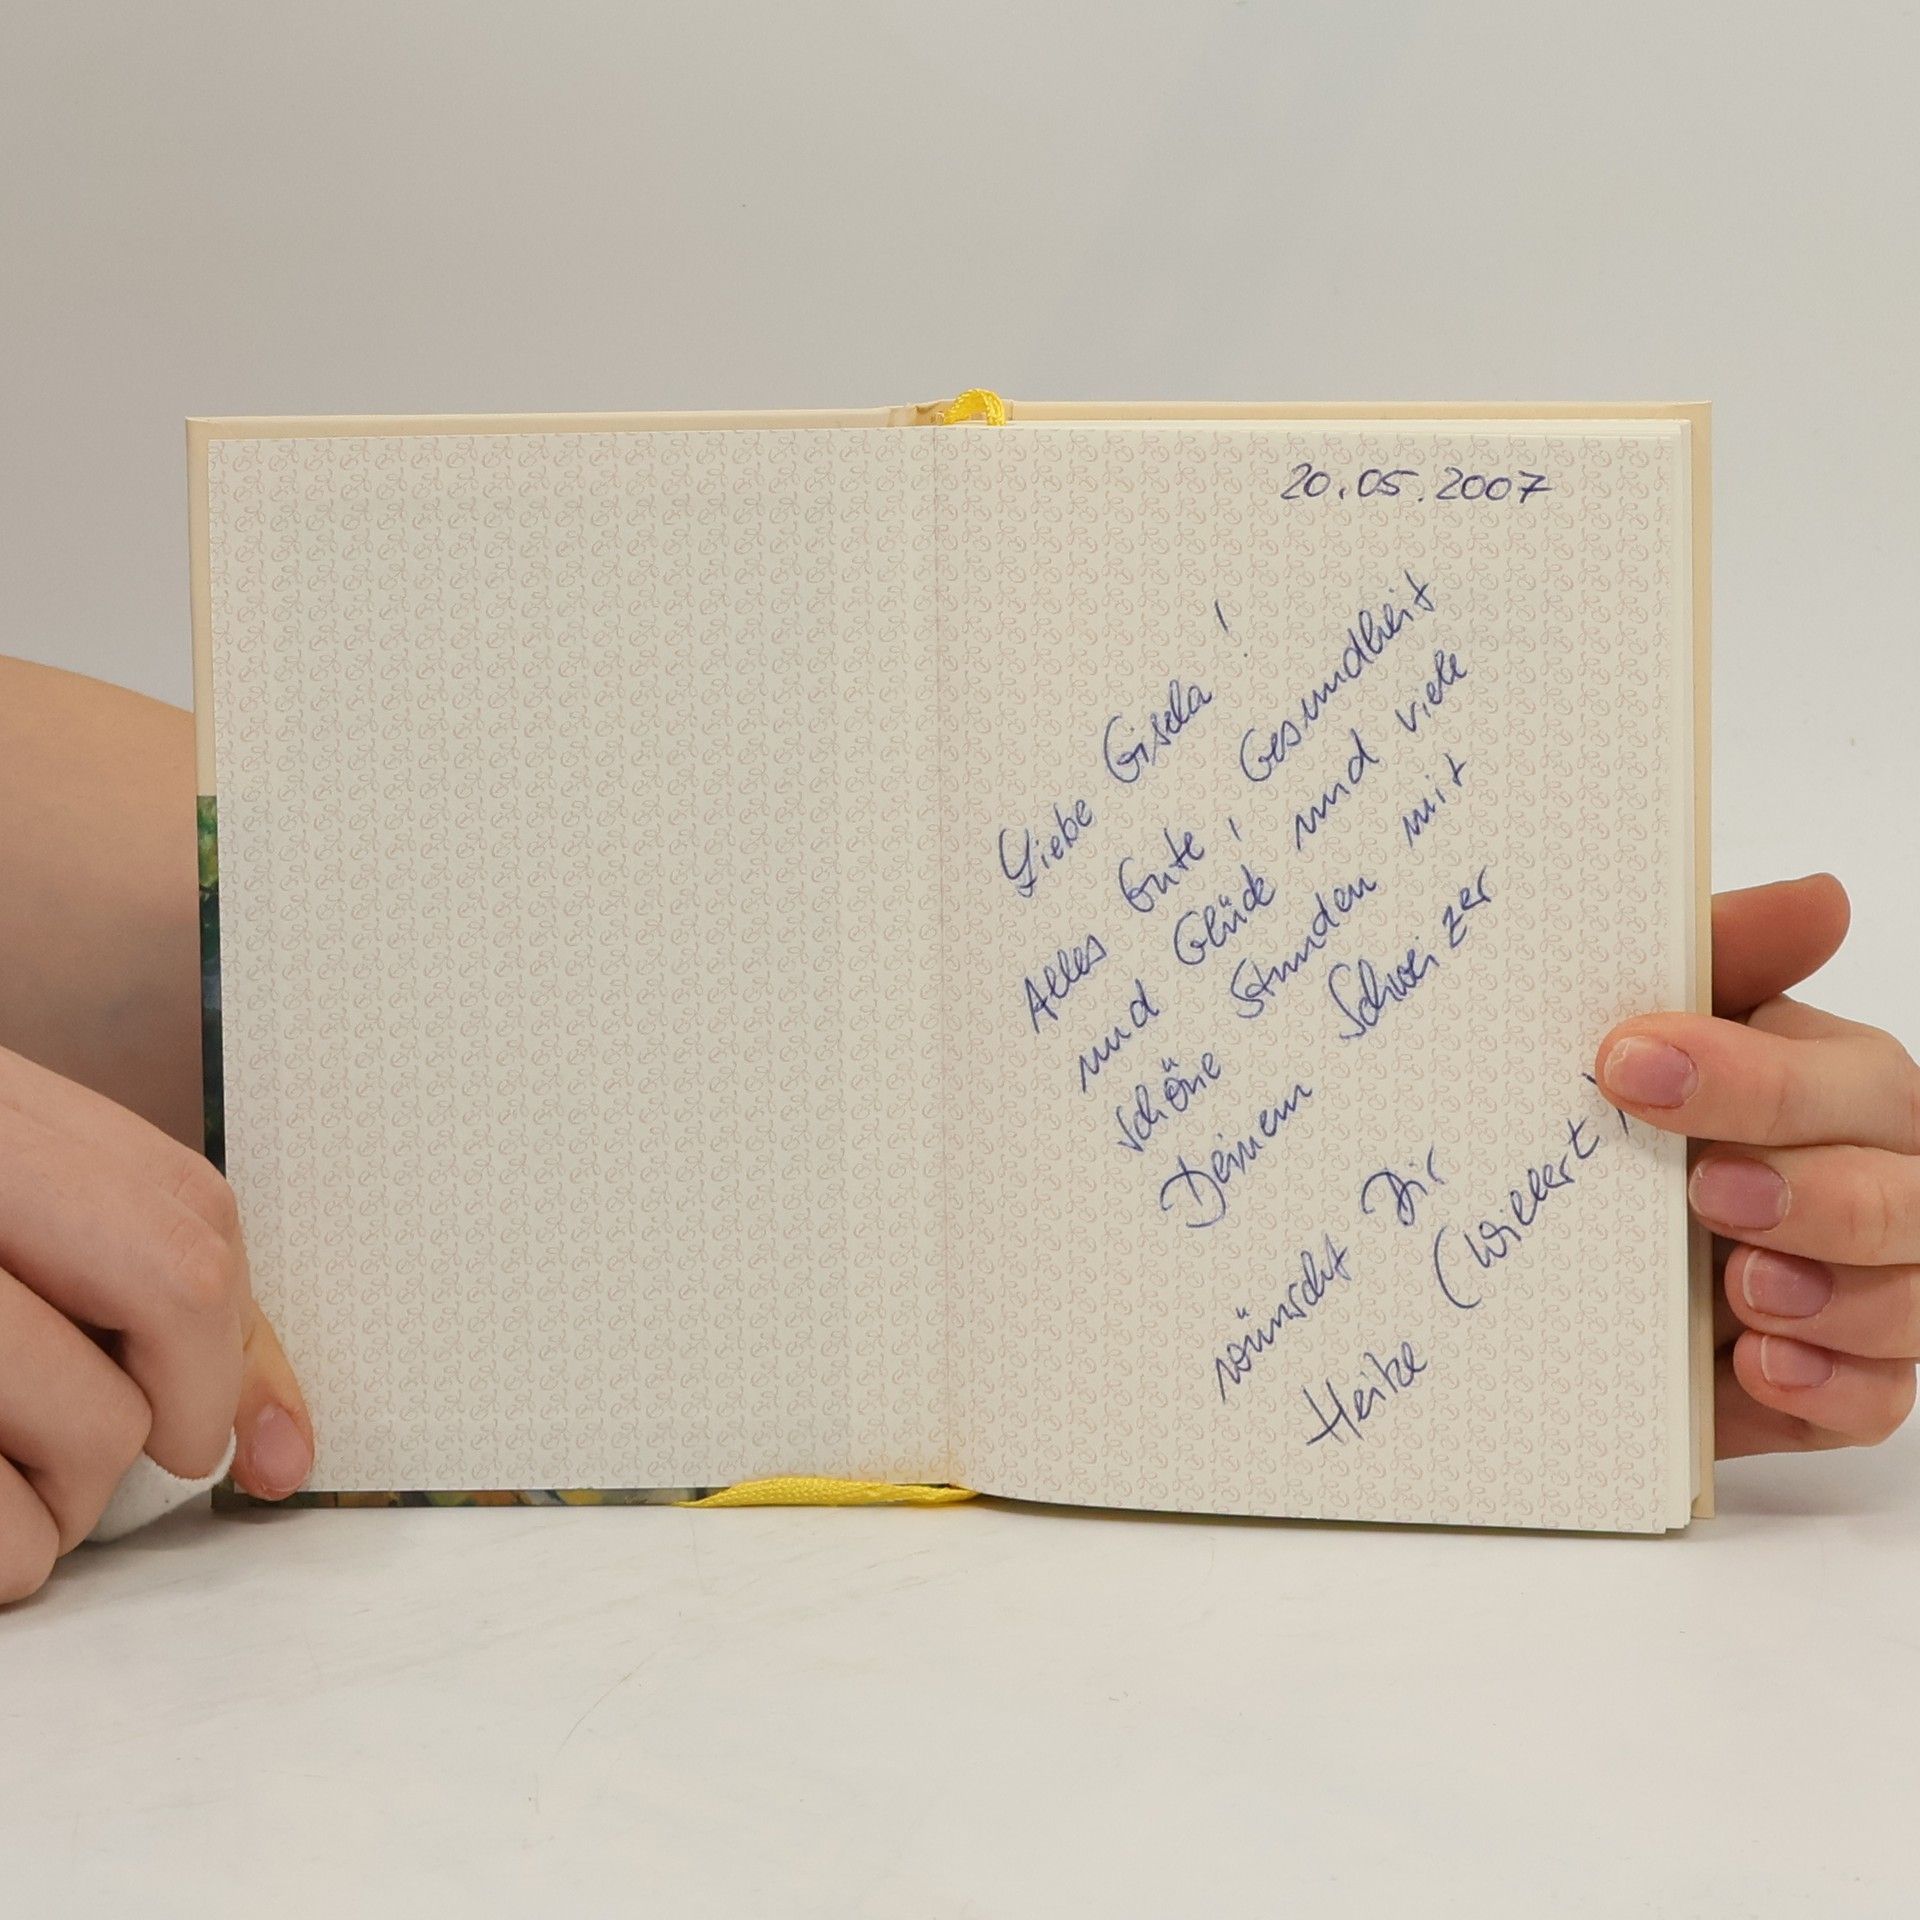 20.05.2007
Liebe Gisela !
Alles Gute, Gesundheit
und Glück und viele
schöne Stunden mit
Deinem Schweizer
wünscht Dir
Heike (Willert)